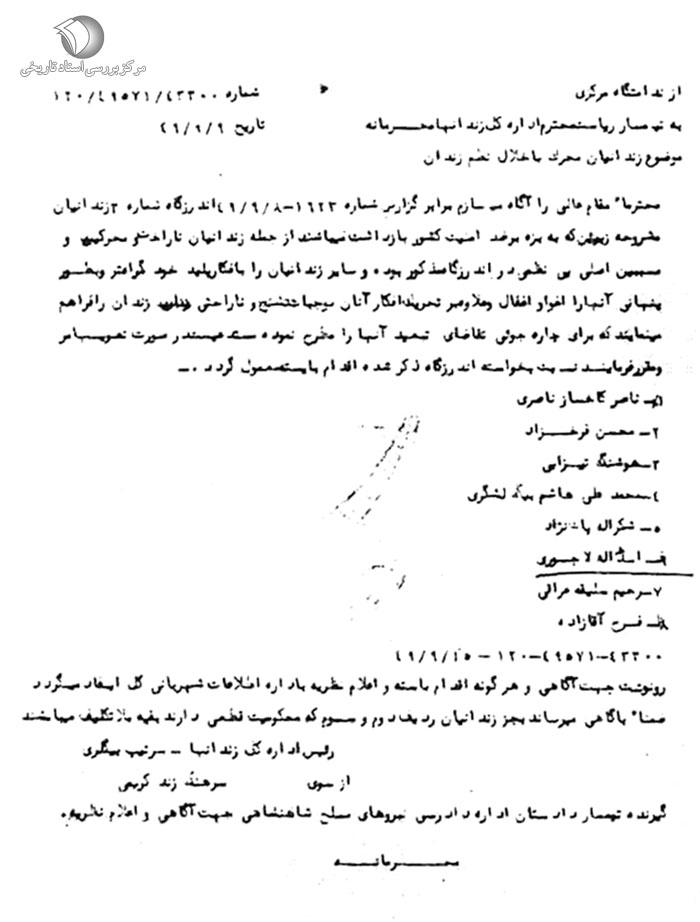 مرکز بررسی اسناد تاریخی
از ندامتگاه مرکزی
شماره ۱۲۰/۴۹۵۷۱/۴۳۳۰۰
به تیمسار ریاست محترم اداره کل زندانها محرمانه
تاریخ ۴۹/۹/۹
موضوع زندانیان محرک باخلال نظم زندان
محترماً مقام عالی را آگاه میسازم برابر گزارش شماره ۱۶۲۳-۴۹/۹/۸ اندرزگاه شماره ۳ زندانیان
مشروحه زیرین که به بزه برضد امنیت کشور بازداشت میباشند از جمله زندانیان ناراحت و محرکین و
مسببین اصلی بی نظمی در اندرزگاه مذکور بوده و سایر زندانیان را با افکار پلید خود گمراه تر و بطور
پنهانی آنها را اغوا و اغفال و علاوه بر تحریک افکار آنان موجبات تشنج و ناراحتی زندان را فراهم
مینمایند که برای چاره جوئی تقاضای تبعید آنها را مطرح نموده در صورت تصویب امر
و مقرر فرمایند نسبت بخواسته اندرزگاه ذکر شده اقدام بایسته معمول گردد .ـ
۱ـ ناصر کاخساز ناصری
۲ـ محسن فرخزاد
۳ـ هوشنگ تیزابی
۴ـ محمد علی هاشم بیگ لشگری
۵ـ شکراله پاک نژاد
۶ـ اسداله لاجوردی
۷ـ رحیم
۸ـ فرج آقازاده
۴۳۳۰۰-۴۹۵۷۱-۱۲۰ - ۴۹/۹/۱۵
رونوشت جهت آگاهی و هر گونه اقدام بایسته و اعلام نظریه باداره اطلاعات شهربانی کل ایفاد میگردد
ضمناً باگاهی میرساند بجز زندانیان ردیف دوم و سوم که محکومیت قطعی دارند بقیه بلاتکلیف میباشند
رئیس اداره کل زندانها ـ سرتیپ بیگلری
از سوی سرهنگ زند کریمی
گیرنده تیمسار دادستان اداره دادرسی نیروهای مسلح شاهنشاهی جهت آگاهی و اعلام نظریه.
محرمانه